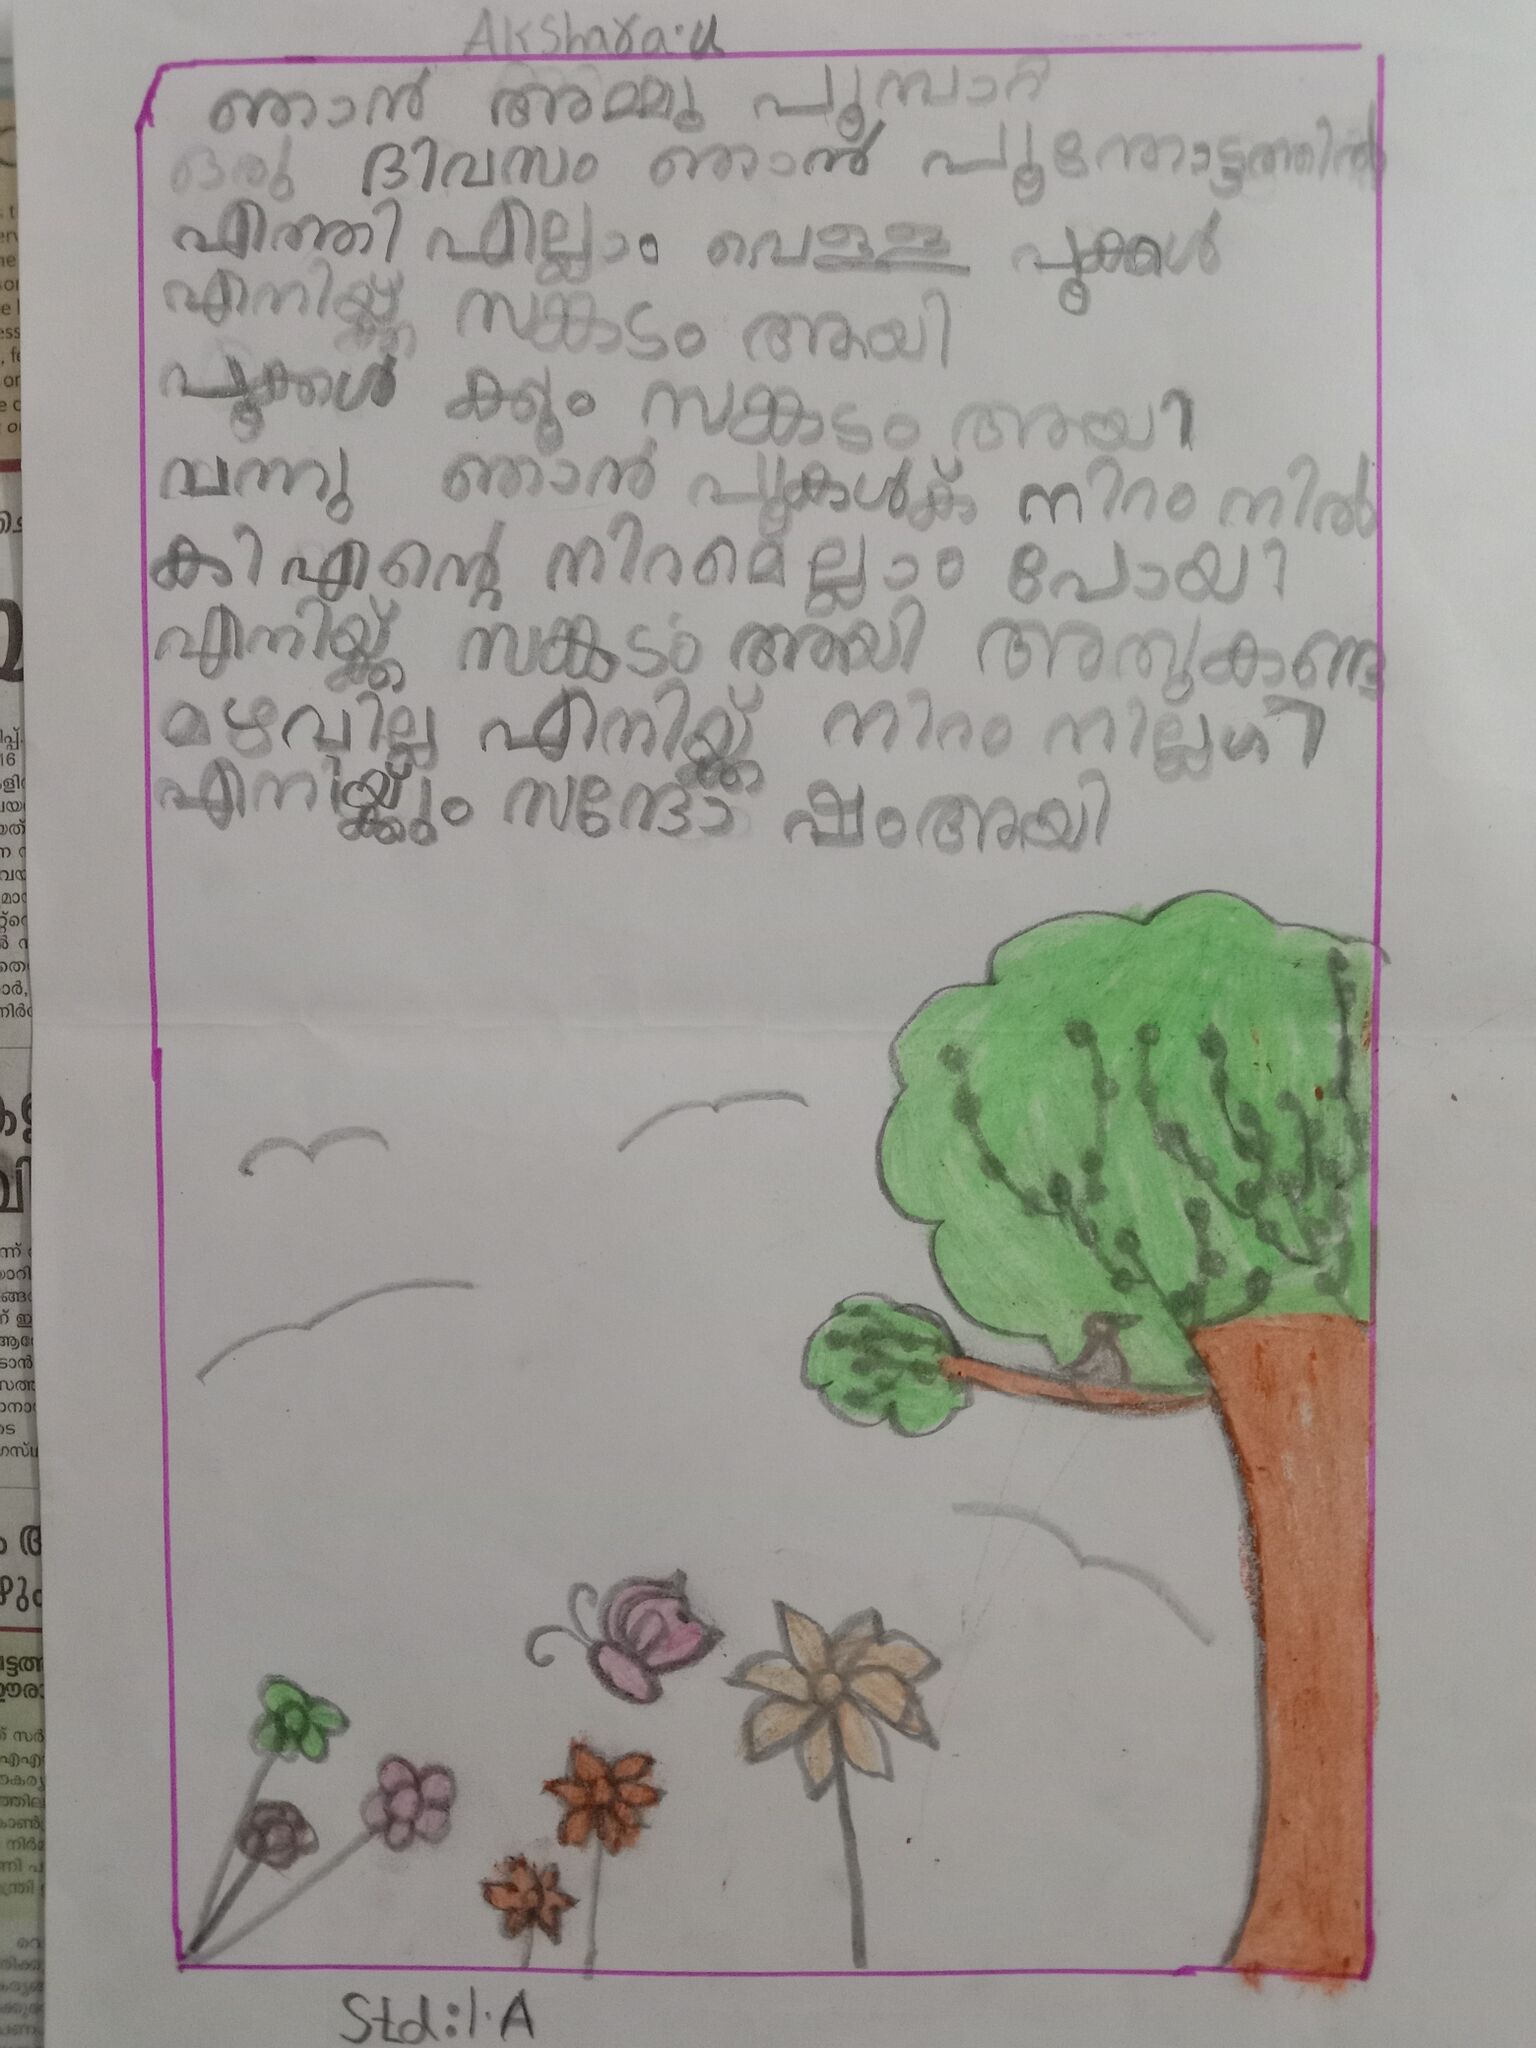 Akshara.u
ഞാൻ അമ്മു പൂമ്പാറ്
ഒരു ദിവസം ഞാൻ പൂന്തോട്ടത്തിൽ
എത്തി എല്ലാം വെള്ള പൂക്കൾ
എനിയ്ക്ക് സങ്കടം ആയി
പൂക്കൾ ക്കും സങ്കടം ആയി
വന്നു ഞാൻ പൂകൾക് നിറം നിൽ
കി എന്റെ നിറമെല്ലാം പോയി
എനിയ്ക്ക് സങ്കടം ആയി അതുകണ്ട
മഴവില്ല എനിയ്ക്ക് നിറം നില്ലഗി
എനിയ്ക്കും സന്തോ ഷംആയി
Std:1.A